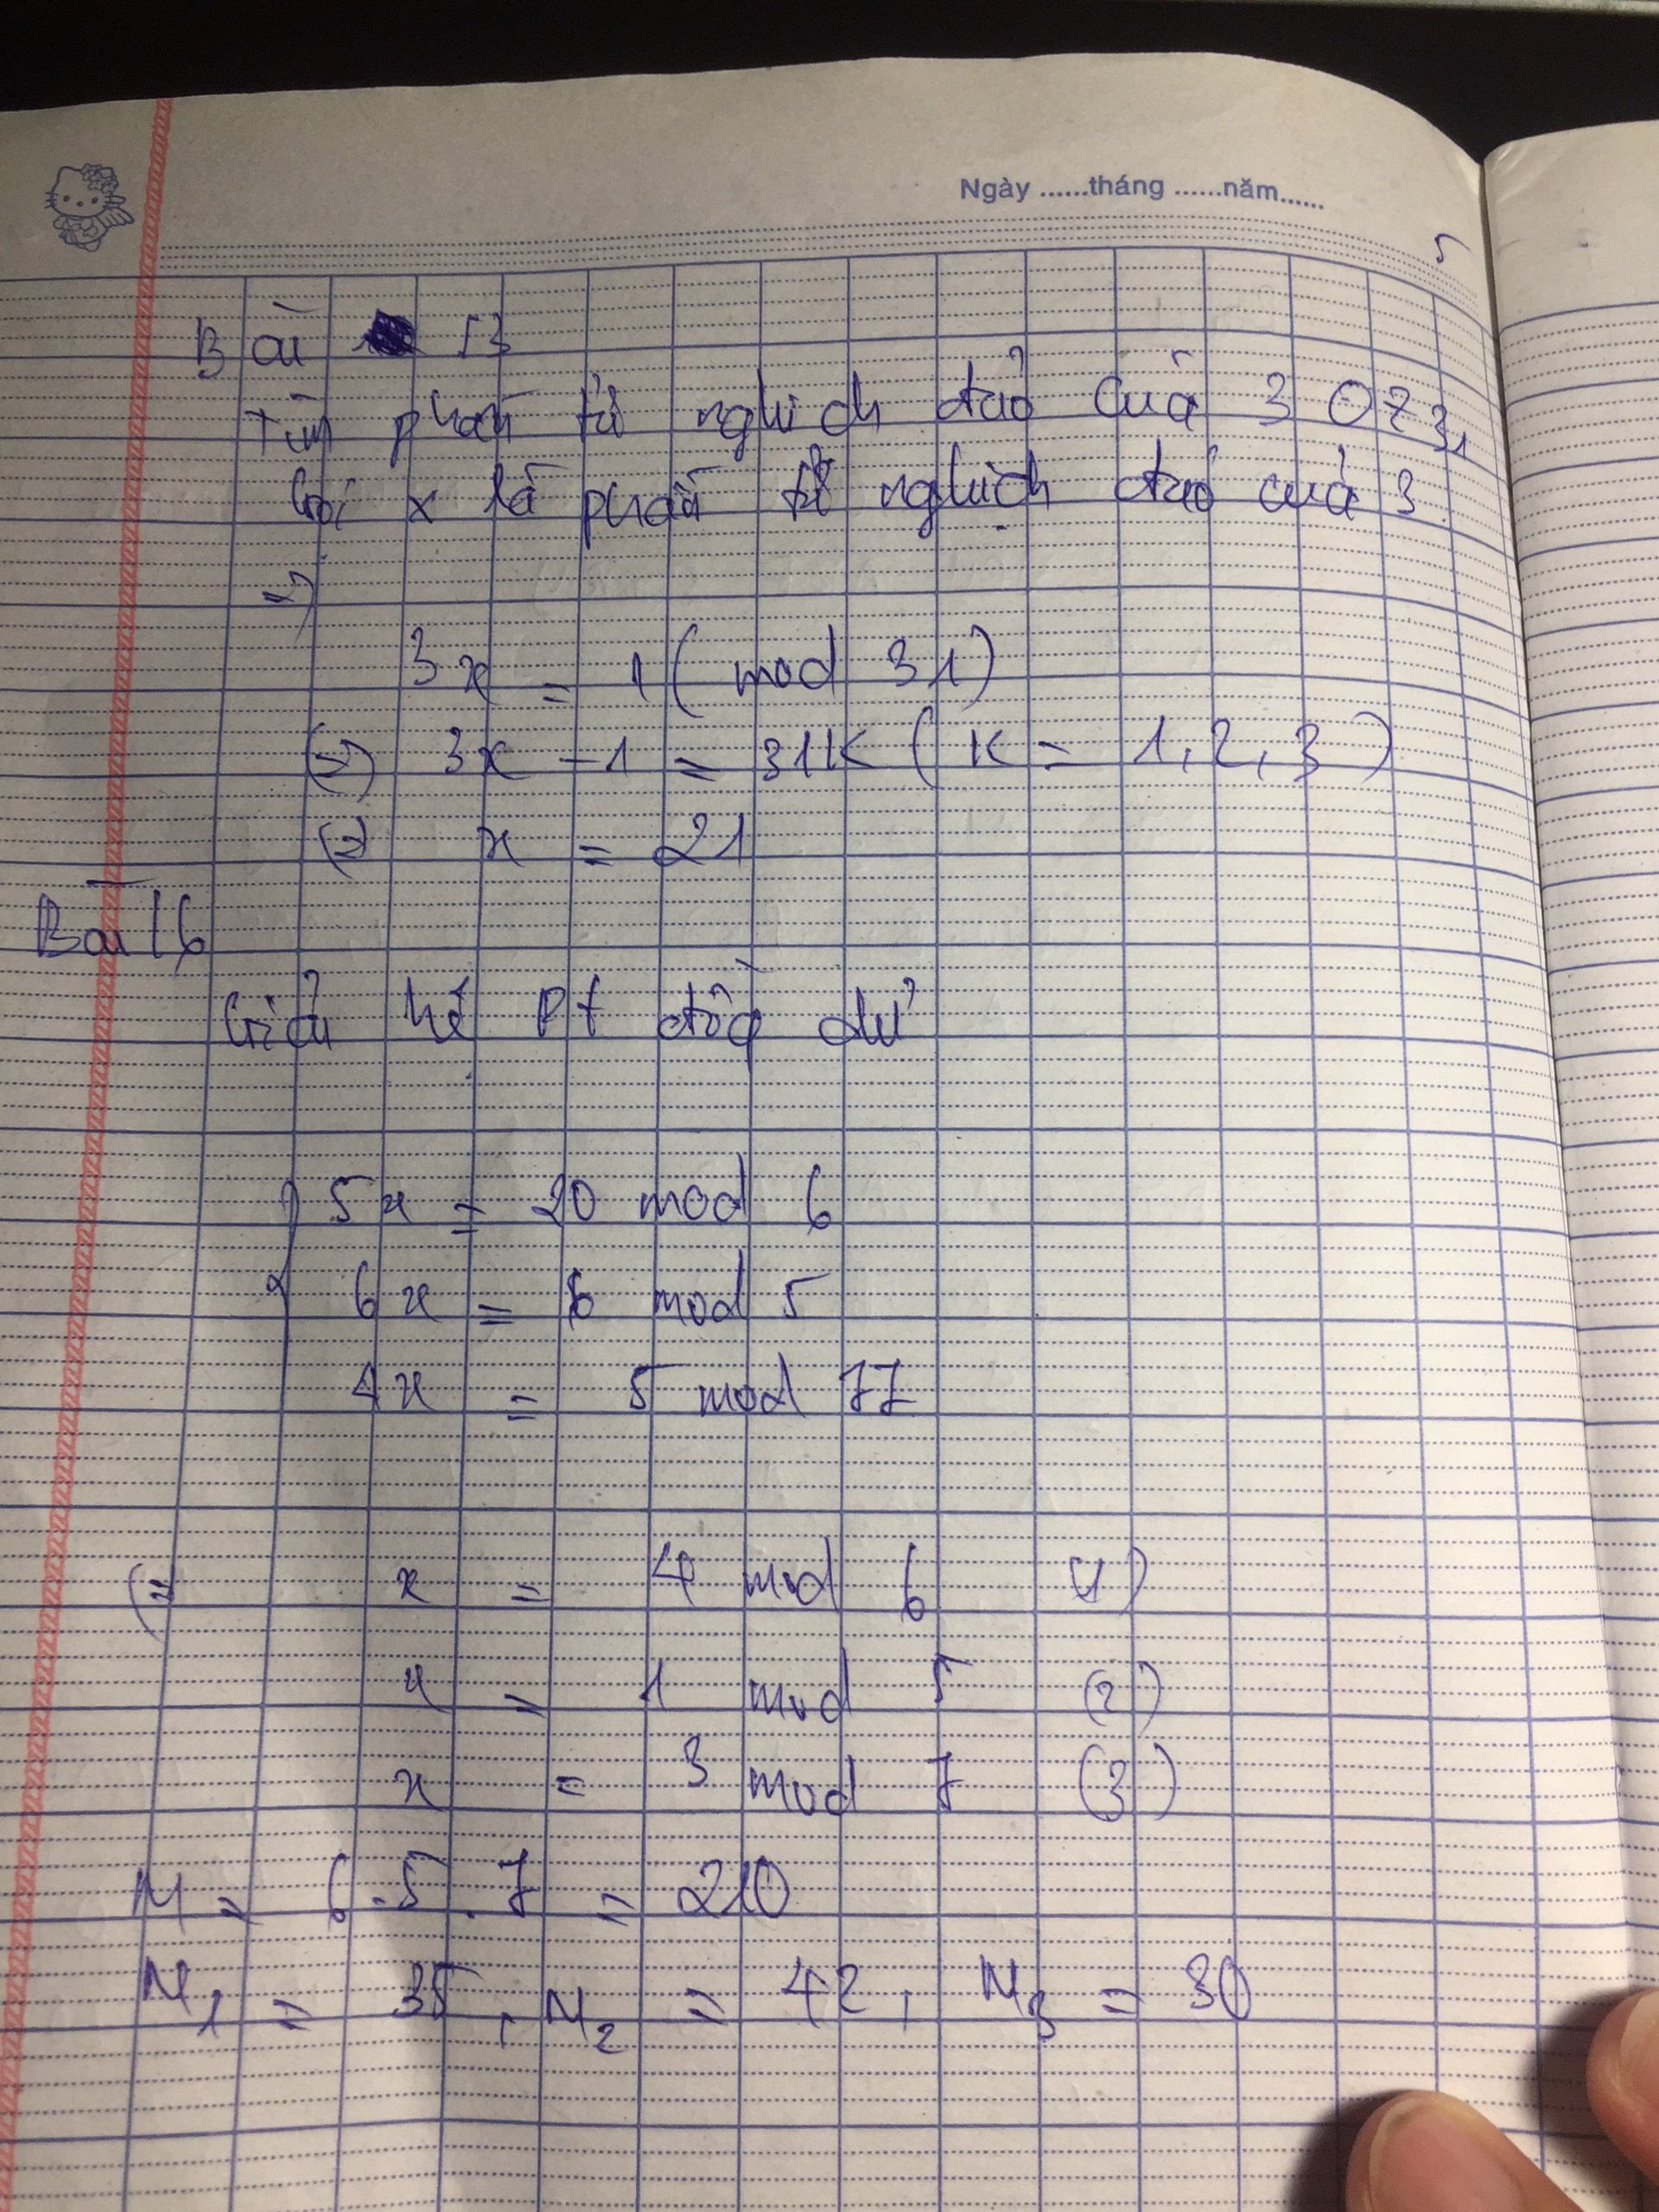 Ngày ......tháng ......năm......
5
Bài 13
Tìm phần tử nghịch đảo của 3 Z 31
Gọi x là phần tử nghịch đảo của 3
=>
3x = 1 ( mod 31)
(=) 3x - 1 = 31K ( K = 1, 2, 3 )
(=) x = 21
Bài 16
Giải hệ Pt dư
5x = 20 mod 6
6x = 6 mod 5
4x = 5 mod 77
(= x = 4 mod 6 (1)
x = 1 mod 5 (2)
x = 3 mod 7 (3)
M = 6.5.7 = 210
M1 = 35, M2 = 42, M3 = 30